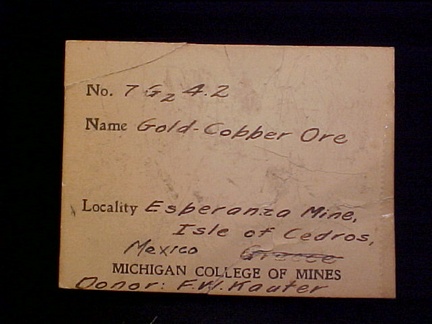 No. 7 G2 4.2
Name Gold-Copper Ore
Locality Esperanza Mine,
Isle of Cedros,
Mexico Greece
MICHIGAN COLLEGE OF MINES
Donor: F.W. Kauter